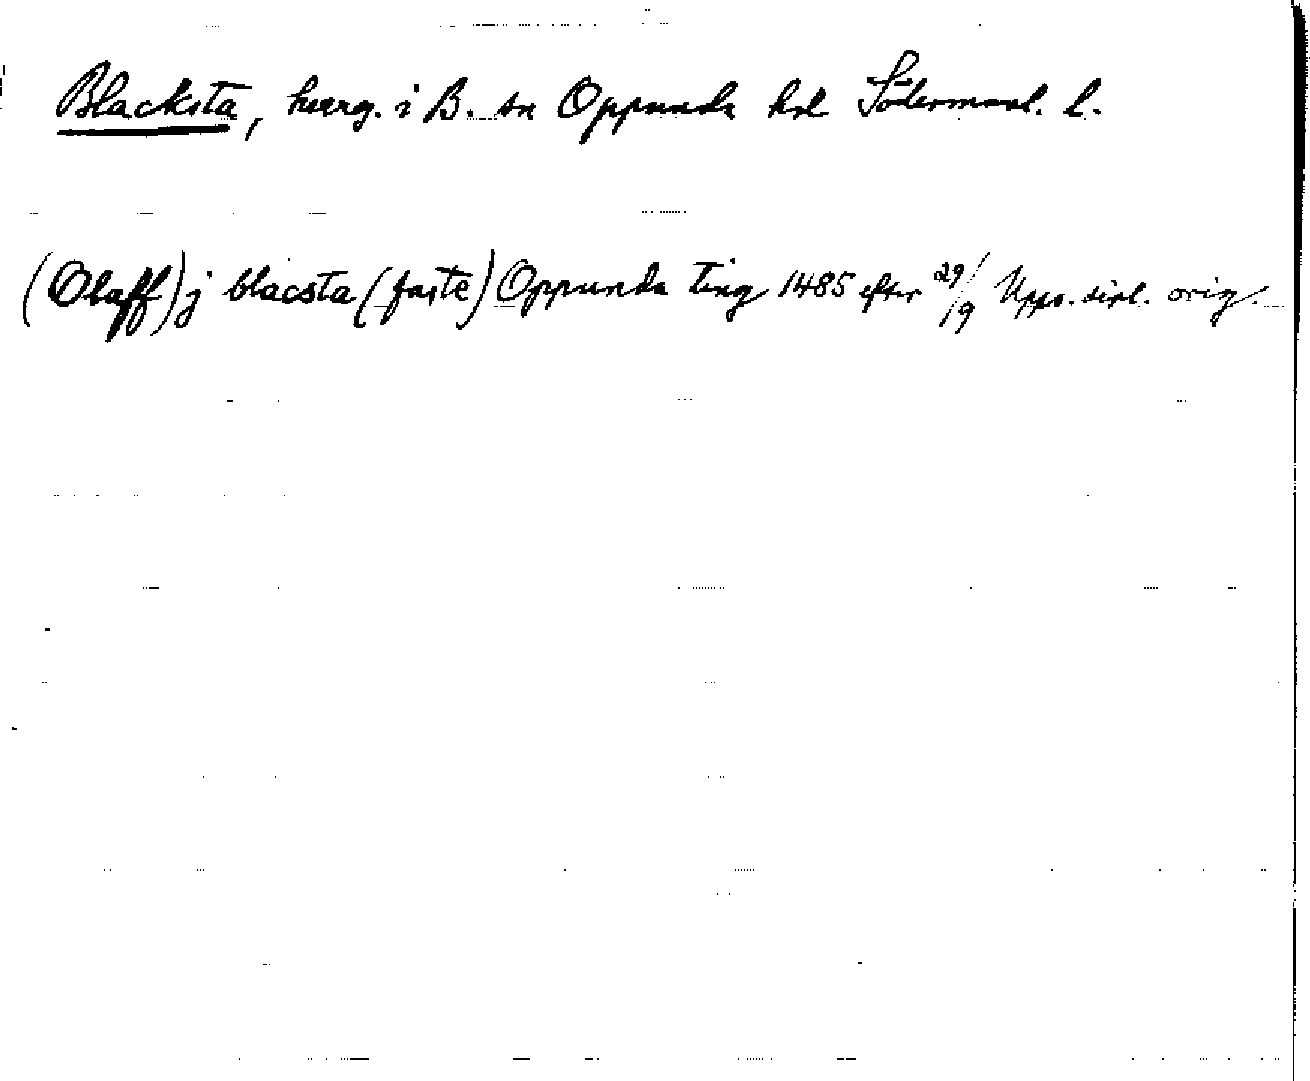 Blacksta, herrg. i B. sn Oppunda hd Södermanl. l.
(Olaff) j blacsta (faste) Oppunda Ting 1485 efter 29/9 Upps. dipl. orig.